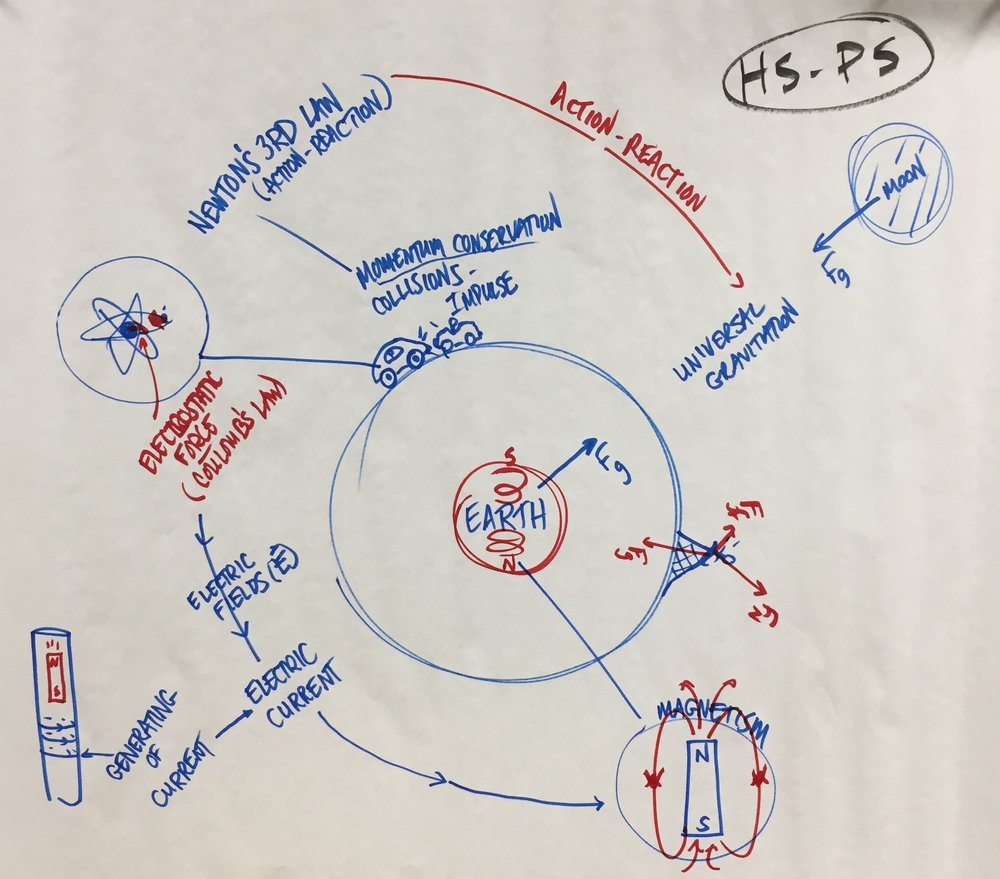 HS-PS
NEWTON'S 3RD LAW
(ACTION-REACTION)
ACTION-REACTION
MOON
Fg
MOMENTUM CONSERVATION
COLLISIONS-
IMPULSE
UNIVERSAL
GRAVITATION
ELECTROSTATIC
FORCE
(COULOMB'S LAW)
S
EARTH
N
Fg
ELECTRIC
FIELDS (E)
ELECTRIC
CURRENT
GENERATING
OF
CURRENT
N
S
MAGNETISM
N
S